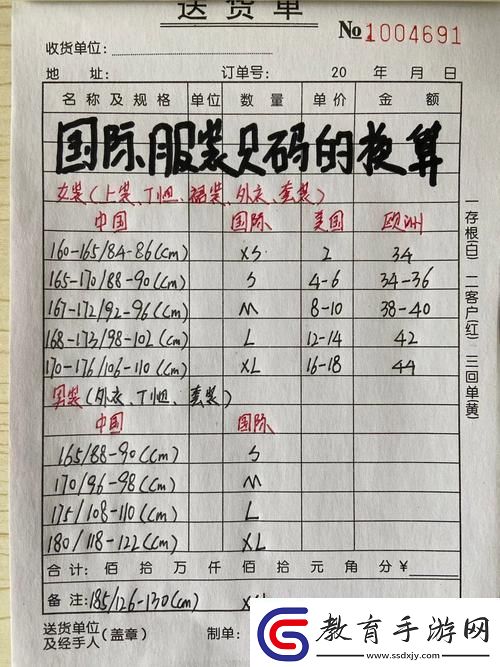 送货单
№1004691
收货单位：
地 址： 订单号： 20 年 月 日
名称及规格 单位 数量 单价 金额
国际服装尺码的换算
女装（上装、T恤、裙装、外衣、套装）
中国 国际 美国 欧洲
160-165/84-86(cm) XS 2 34
165-170/88-90(cm) S 4-6 34-36
167-172/92-96(cm) M 8-10 38-40
168-173/98-102(cm) L 12-14 42
170-176/106-110(cm) XL 16-18 44
男装（外衣、T恤、套装）
中国 国际
165/88-90(cm) S
170/96-98(cm) M
175/108-110(cm) L
180/118-122(cm) XL
合计： 佰 拾 万 仟 佰 拾 元 角 分 ¥
备注：185/126-130(cm)
送货单位
及经手人（盖章） 制单：
一存根(白) 二客户(红) 三回单(黄)
教育手游网
www.ssdxjy.com